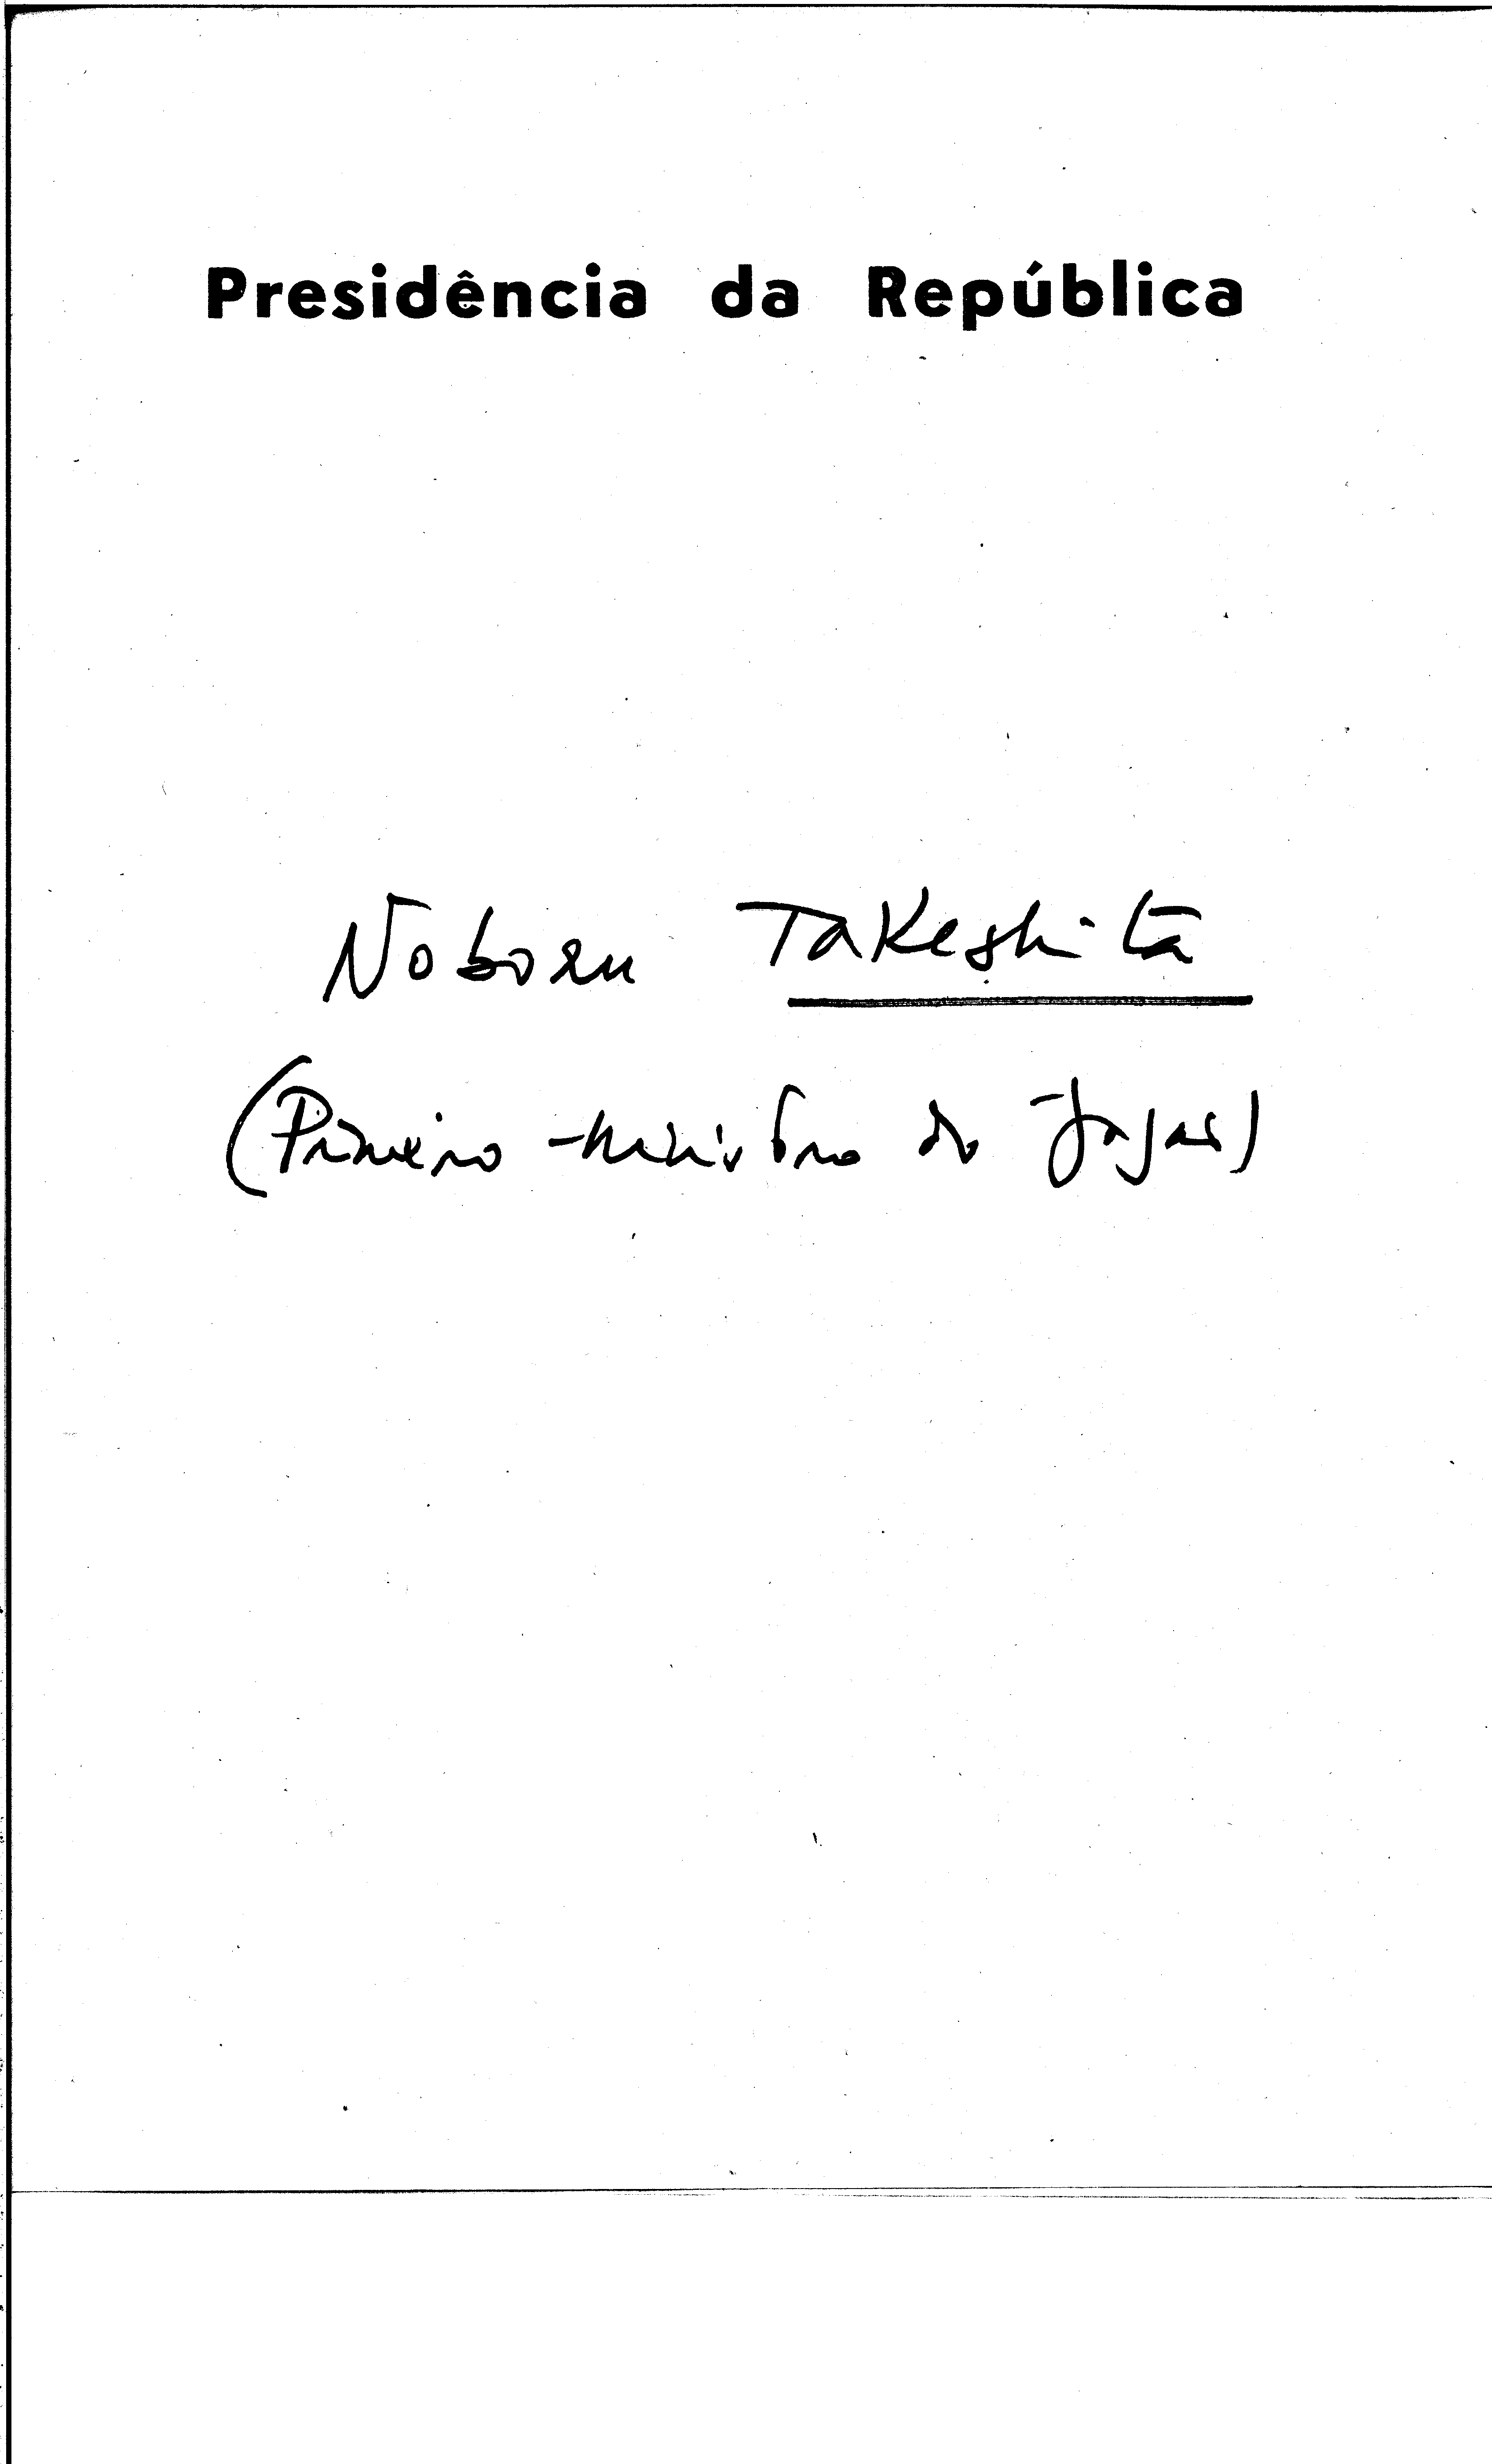 Presidência da República
Noboru Takeshita
(Primeiro-ministro do Japão)